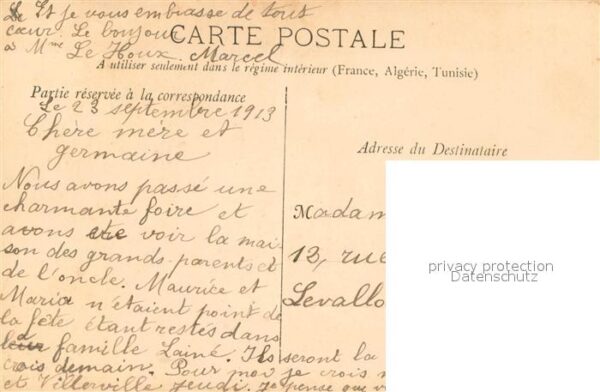 Et je vous embrasse de tout
cœur. Le bonjour
à Mme Le Houx. Marcel
CARTE POSTALE
A utiliser seulement dans le régime intérieur (France, Algérie, Tunisie)
Partie réservée à la correspondance
Le 23 septembre 1913
Chère mère et
germaine
Nous avons passé une
charmante foire et
avons été voir la mai-
son des grands-parents et
de l'oncle. Maurice et
Maria n'étaient point de
la fête étant restés dans
la famille Lainé. Ils seront la
crois demain. Pour moi je vois
et Villerville jeudi. Je pense que
Adresse du Destinataire
Madam
13, rue
Levallo
privacy protection
Datenschutz